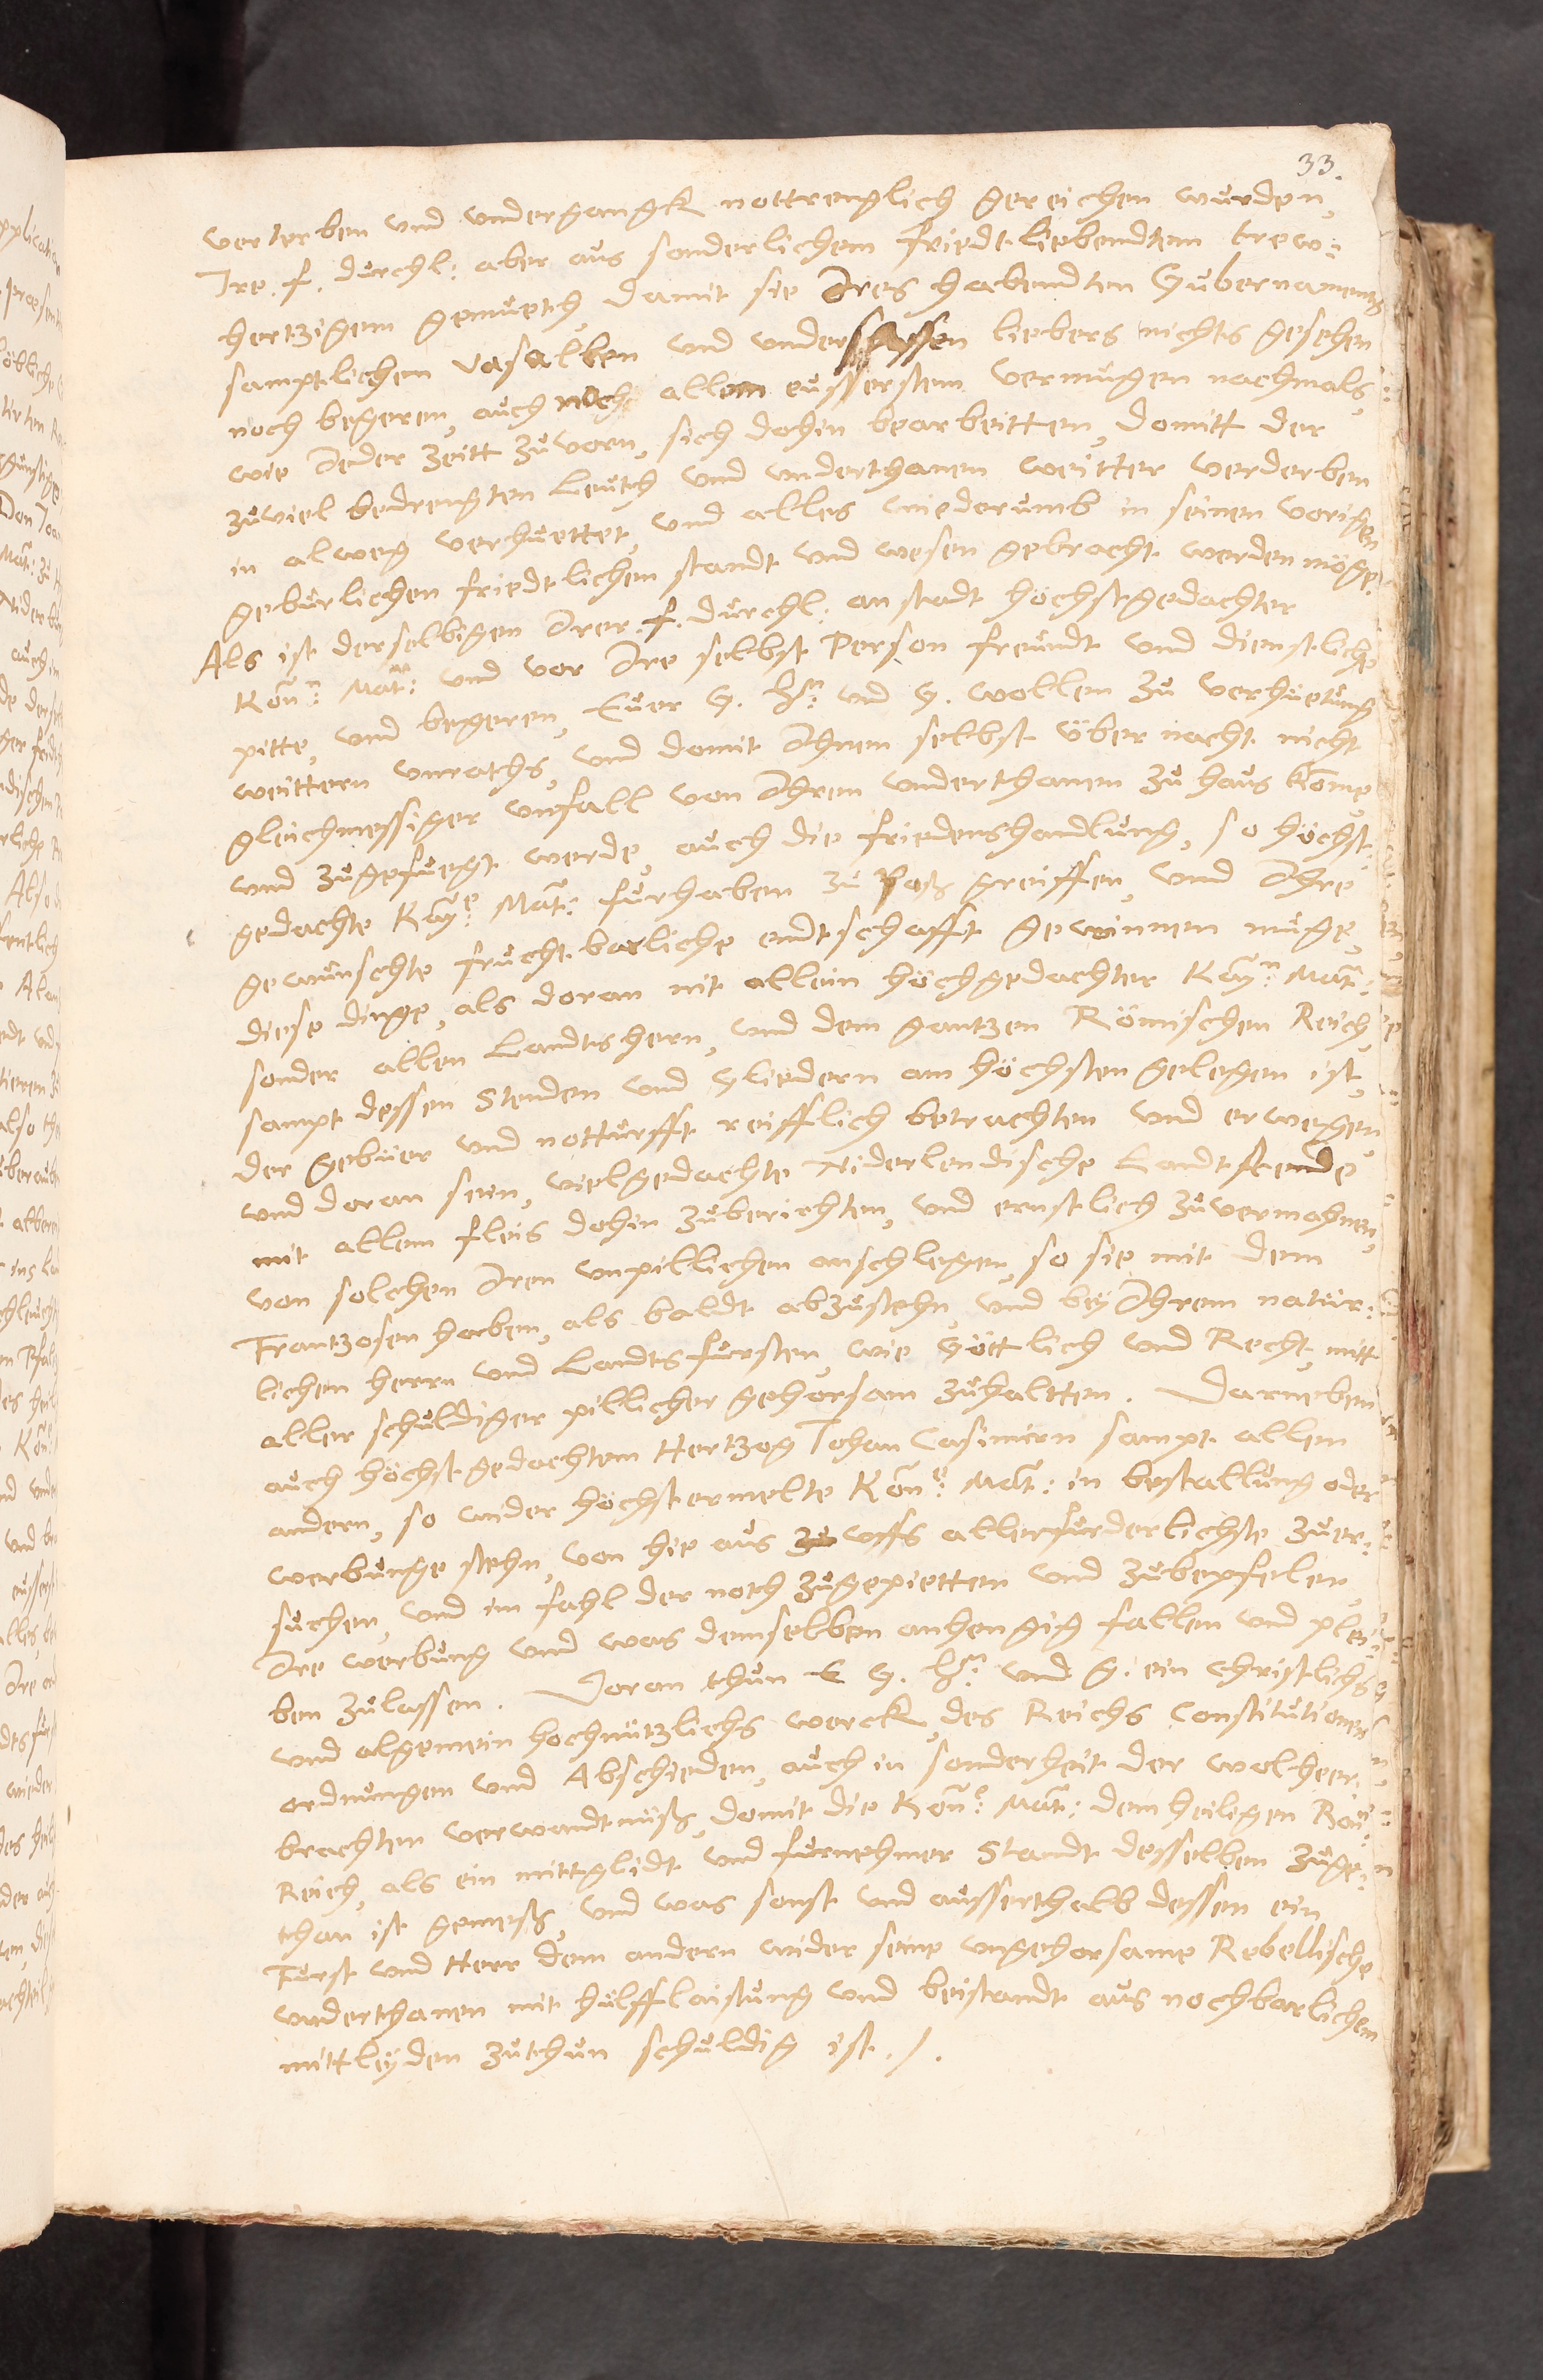 33.
verterben und undergangk nottrenglich gereichen wurden,
Ire. f. durchl: aber aus sonderlichem friedt liebendtem trew-
hertzigem gemueth damit sie Ires habendten Gubernaments
samptlichen Vasallen und undersassen liebers nichts gesehen
noch begeren, auch noch allem eusserstem vermugen nachmals,
wie Jeder Zeitt zuvorn, sich dohin bearbeitten, domitt der
zuviel bedrengten Leuth und underthanen weitter verderben
in alweg verhuettet, und alles wiederumb in seinen vorigen
geburlichen friedtlichen standt und wesen gebracht werden möge.
Als ist derselbigen Irer. f. durchl: anstadt höchstgedachter
Kön: Mat: und vor Ire selbst Person freundt und dienstliche
pitte, und begeren, Euer G. hn: und G. wollen zu verhuetung
weittern unraths, und domit Ihnen selbst über nacht nicht
gleichmessiger unfall von Ihren underthanen zu haus kome,
und zugefuegt werde, auch die friedenshandlung, so höchst-
gedachte Kaye: Mat: furhaben zu paß greiffen, und Ihre
gewunschte frucht barliche endtschafft gewinnen muge,
diese dinge, als doran nit allein höchgedachter Kayn: Mat:
sonder allen Landtshern, und dem gantzen Römischen Reich,
sampt dessen Stenden und Gliedern am höchsten gelegen ist,
der gebüer und notturfft reifflich betrachten und erwegen
und doran sein, vielgedachte Niderlendische Landtstende
mit allem fleis dohin zuberichten, und ernstlich zuvermahnen,
von solchen Iren unpillichen anschlegen, so sie mit denn
Frantzosen haben, als baldt abzustehn, und bey Ihrem natür-
lichen herrn und Landtsfursten, wie Göttlich und Recht, mitt
aller schuldiger pillicher gehorsam zuhaltten. Darneben
auch höchstgedachtem Hertzog Johan Casimirn sampt allen
andern, so wider höchstermelte Köne: Mat: in bestallung oder
werbunge stehn, von hie aus uffs allerfurderlichste zuer-
suchen, und im fahl der noth zugepietten und zubepfelen,
Ire werbung und was demselben anhengig fallen und plei-
ben zulassen. Doran thun E G. hn: und G. ein christlichs
und algemein hochnützlichs werck, des Reichs Constitutionen
ordnungen und Abschieden, auch in sonderheit der wolheer-
brachten verwandtnuß, domit die Köne: Mat: dem heiligen Röm:
Reich, als ein mittglidt und furnehmer Standt desselben zuge-
than ist gemeß, und was sonst und ausserthalb dessen ein
Furst und Herr dem andern wider seine ungehorsame Rebellische
underthanen mit hülffleistung und beistandt aus nochbarlichem
mittleyden zuthun schuldig ist./.